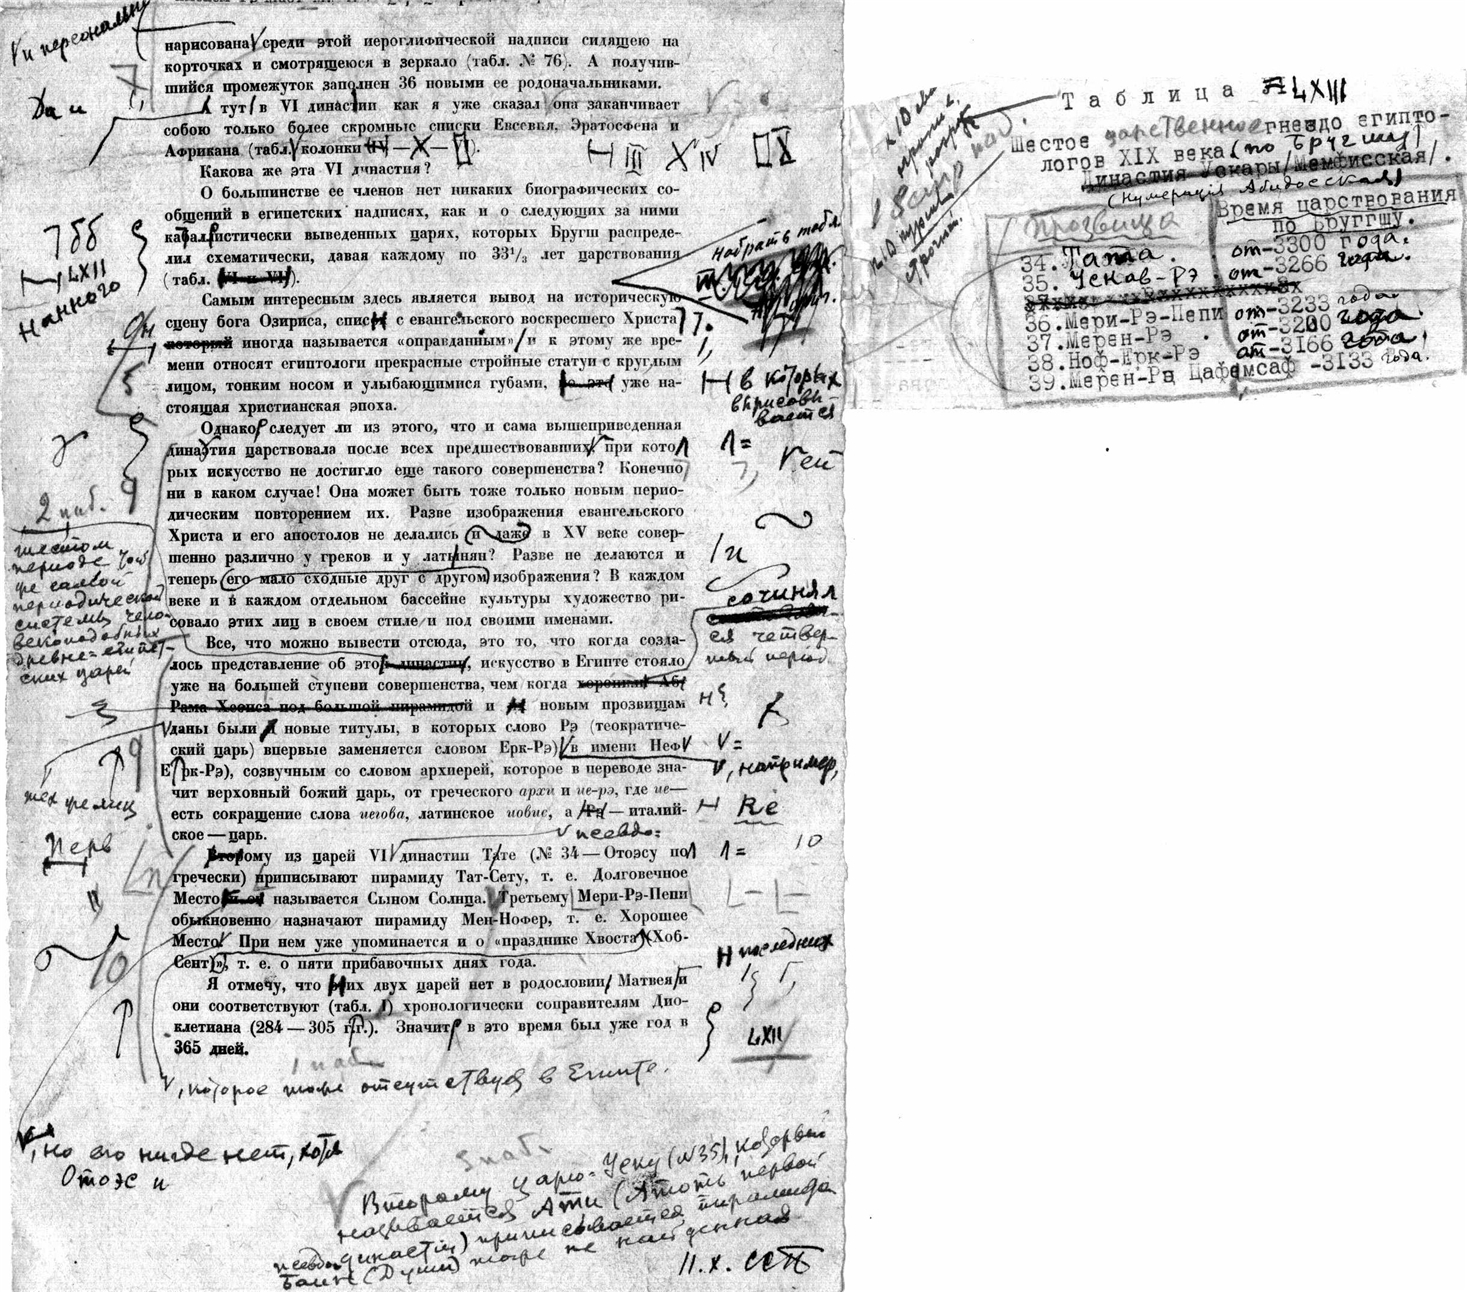 V и персональн
нарисована среди этой иероглифической надписи сидящею на
корточках и смотрящеюся в зеркало (табл. № 76). А получив-
шийся промежуток заполнен 36 новыми ее родоначальниками.
Да и
А тут в VI династии как я уже сказал она заканчивает
собою только более скромные списки Евсевия, Эратосфена и
Африкана (табл. колонки IV — X —
H III XIV IX
Какова же эта VI династия?
О большинстве ее членов нет никаких биографических со-
общений в египетских надписях, как и о следующих за ними
каббалистически выведенных царях, которых Бругш распреде-
лил схематически, давая каждому по 33¹/₃ лет царствования
(табл. VI и VII).
7бб
LXII
нанного
Набрать табл.
Самым интересным здесь является вывод на историческую
сцену бога Озириса, список с евангельского воскресшего Христа
который иногда называется «оправданным» и к этому же вре-
мени относят египтологи прекрасные стройные статуи с круглым
лицом, тонким носом и улыбающимися губами, но это уже на-
стоящая христианская эпоха.
Он
в которых
вырисовы-
вается
Однако, следует ли из этого, что и сама вышеприведенная
династия царствовала после всех предшествовавших, при кото-
рых искусство не достигло еще такого совершенства? Конечно
ни в каком случае! Она может быть тоже только новым перио-
дическим повторением их. Разве изображения евангельского
Христа и его апостолов не делались и даже в XV веке совер-
шенно различно у греков и у латынян? Разве не делаются и
теперь его мало сходные друг с другом изображения? В каждом
веке и в каждом отдельном бассейне культуры художество ри-
совало этих лиц в своем стиле и под своими именами.
V ей
2 наб.
шестом
периоде
же самой
периодической
системы чело-
векоподобных
древне-египет-
ских царей
сочинял
ся четвер-
тый период
Все, что можно вывести отсюда, это то, что когда созда-
лось представление об этой династии, искусство в Египте стояло
уже на большей ступени совершенства, чем когда хоронили Аб-
Рама Хеопса под большой пирамидой и новым прозвищам
даны были новые титулы, в которых слово Рэ (теократиче-
ский царь) впервые заменяется словом Ерк-Рэ) в имени Неф
Ерк-Рэ), созвучным со словом архиерей, которое в переводе зна-
чит верховный божий царь, от греческого архи и ие-рэ, где ие—
есть сокращение слова иегова, латинское иовис, а Рэ — италий-
ское — царь.
V, например,
Rè
тех же лиц
Перв
V псевдо=
Второму из царей VI династии Тате (№ 34 — Отоэсу по
гречески) приписывают пирамиду Тат-Сету, т. е. Долговечное
Место и он называется Сыном Солнца. Третьему Мери-Рэ-Пепи
обыкновенно назначают пирамиду Мен-Нофер, т. е. Хорошее
Место. При нем уже упоминается и о «празднике Хвоста (Хоб-
Сент)», т. е. о пяти прибавочных днях года.
10
последних
Я отмечу, что этих двух царей нет в родословии Матвея и
они соответствуют (табл. I) хронологически соправителям Дио-
клетиана (284 — 305 гг.). Значит, в это время был уже год в
365 дней.
LXII
1 наб.
V, которое тоже отсутствует в Египте.
V, но его нигде нет, хотя
Отоэс и
3 наб.
Второму царю - Уску (№35), который
называется Ати (Атоть первой
псевдо династии) приписывается пирамида
Баин (Души) тоже не найденная
11.X.
Таблица LXIII
Шестое царственное гнездо египто-
логов XIX века (по Бругшу)
Династия Ускары/Мемфисская/.
(Нумерація Абидосская)
Прозвища
Время царствования
по Бруггшу.
34. Тата. от-3300 года.
35. Ускав-Рэ. от-3266 года.
36. Мери-Рэ-Пепи от-3233 года
37. Мерен-Рэ . от-3200 года
38. Ноф-Ерк-Рэ от-3166 года
39. Мерен-Рэ Цафемсаф -3133 года.